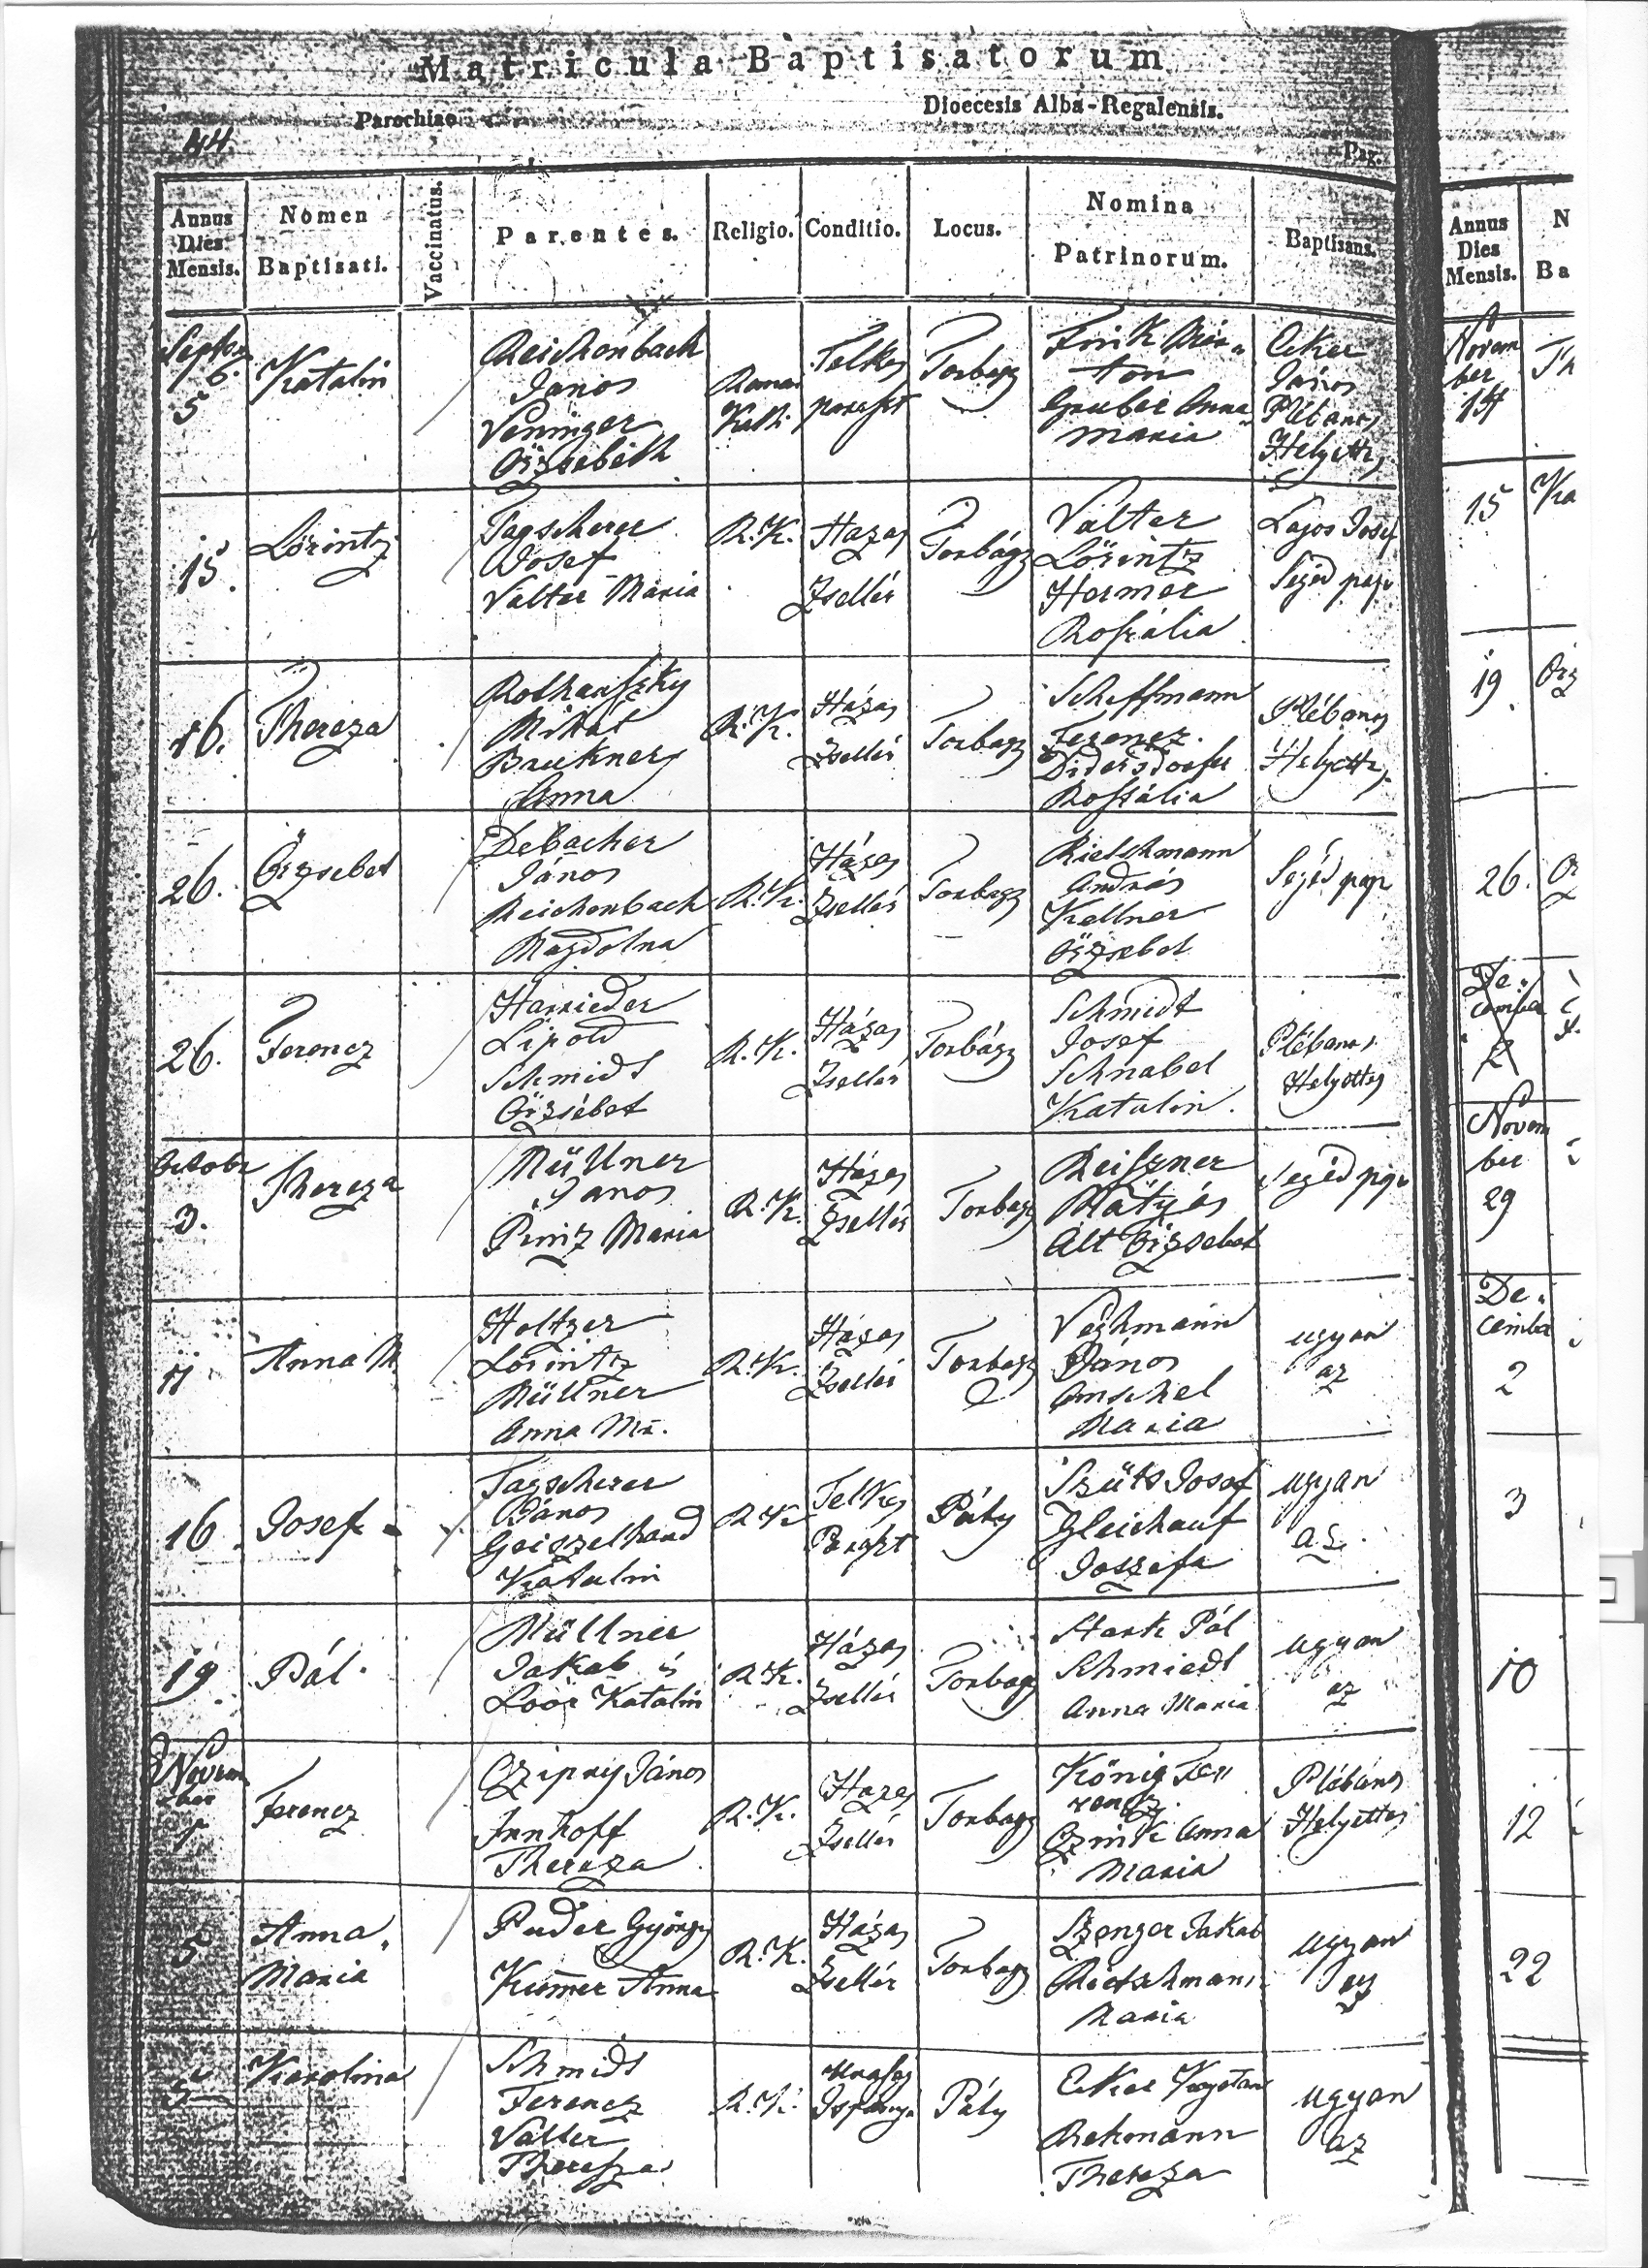 Matricula Baptisatorum
Parochiae
Dioecesis Alba-Regalensis.
44.
Pag.
Annus Dies Mensis.
Nomen Baptisati.
Vaccinatus.
Parentes.
Religio.
Conditio.
Locus.
Nomina Patrinorum.
Baptisans.
Annus
Dies
Mensis.
N
Ba
5
Katalin
Reichenbach
János
Veninger
Örzsebeth
Kath.
Telkes
Torbagy
Gruber Anna
Maria
János
Plébános
Helyettes
15.
Lőrintz
Tagscherer
Josef
Valter Maria
R. K.
Hazas
Zsellér
Torbágy
Valter
Lőrintz
Hermer
Roszália
Lajos Josef
Segéd pap
16.
Thereza
Mihál
Brukner
Anna
R. K.
Házas
Zsellér
Torbagy
Schiffmann
Ferencz
Roszália
Plébános
Helyettes
26.
Örzsebet
Debacher
János
Reichenbach
Magdolna
R. K.
Házas
Zsellér
Torbagy
Rietschmann
András
Kellner
Örzsebet
Segéd pap
26.
Ferencz
Harrieder
Lipold
Schmidt
Örzsébet
R. K.
Házas
Zsellér
Torbágy
Schmidt
Josef
Schnabel
Katalin.
Plébános
Helyettes
Octobr
3.
Thereza
Müllner
Janos
Prinz Maria
R. K.
Házas
Zsellér
Torbagy
Reiszner
Mátyás
Alt Örzsebet
Segéd pap
11
Anna M.
Holtzer
Lőrintz
Müllner
Anna Ma.
R. K.
Házas
Zsellér
Torbagy
János
Amschel
Maria
ugyan
az
16
Josef
Tagscherer
János
Geiszelhard
Katalin
R K
Telkes
Páty
Szüts Josef
Gleichauf
Joszefa
ugyan
az.
19
Pál
Müllner
Jakab és
Loór Katalin
R. K.
Házas
Zsellér
Torbagy
Stark Pál
Schmiedt
Anna Maria
ugyan
az
Novem
ber
1
Ferencz
Czipry János
Innhoff
Thereza
R. K.
Hazas
Zsellér
Torbagy
König Fe
rencz
Czink Anna
Maria
Plébános
Helyettes
5
Anna
Maria
Puder György
Kummer Anna
R. K.
Házas
Zsellér
Torbagy
Szenger Jakab
Rietschmann
Maria
ugyan
az
5
Karolina
Schmidt
Ferencz
Valter
Theresza
R. K.
Páty
Eker Kajetan
Rehmann
Thereza
ugyan
az
Novem
ber
14
Th
15
Ka
19.
Örz
26.
De
cember
2
Novem
ber
29
De
cember
2
3
10
12
22